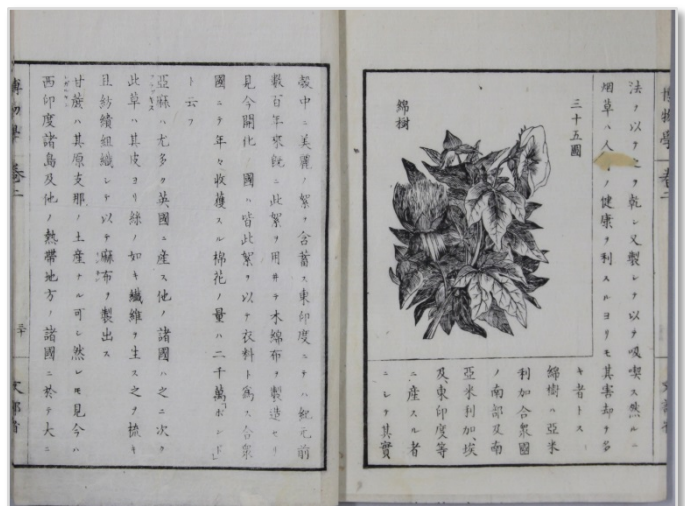 博物學 卷二
法ヲ以テ之ヲ乾シ又製シテ以テ吸喫ス然ルニ
烟草ハ人ノ健康ヲ利スルヨリモ其害却テ多
三十五圖
綿樹
キ者トス
綿樹ハ亞米
利加合衆國
ノ南部及南
亞米利加、埃
及東印度等
ニ産スル者
ニシテ其實
殼中ニ美麗ノ絮ヲ含蓄ス東印度ニテハ紀元前
數百年來既ニ此絮ヲ用井テ木綿布ヲ製造セリ
見今開化ノ國ハ皆此絮ヲ以テ衣料ト爲ス合衆
國ニテ年々收獲スル棉花ノ量ハ二千萬ポンド
ト云フ
亞麻ハ尤多ク英國ニ産ス他ノ諸國ハ之ニ次ク
此草ハ其皮ヨリ絲ノ如キ纖維ヲ生ス之ヲ梳キ
且紗績組織シテ以テ麻布ヲ製出ス
甘蔗ハ其原支那ノ土産ナル可シ然レモ見今ハ
西印度諸島及他ノ熱帶地方ノ諸國ニ於テ大ニ
博物學 卷二
文部省